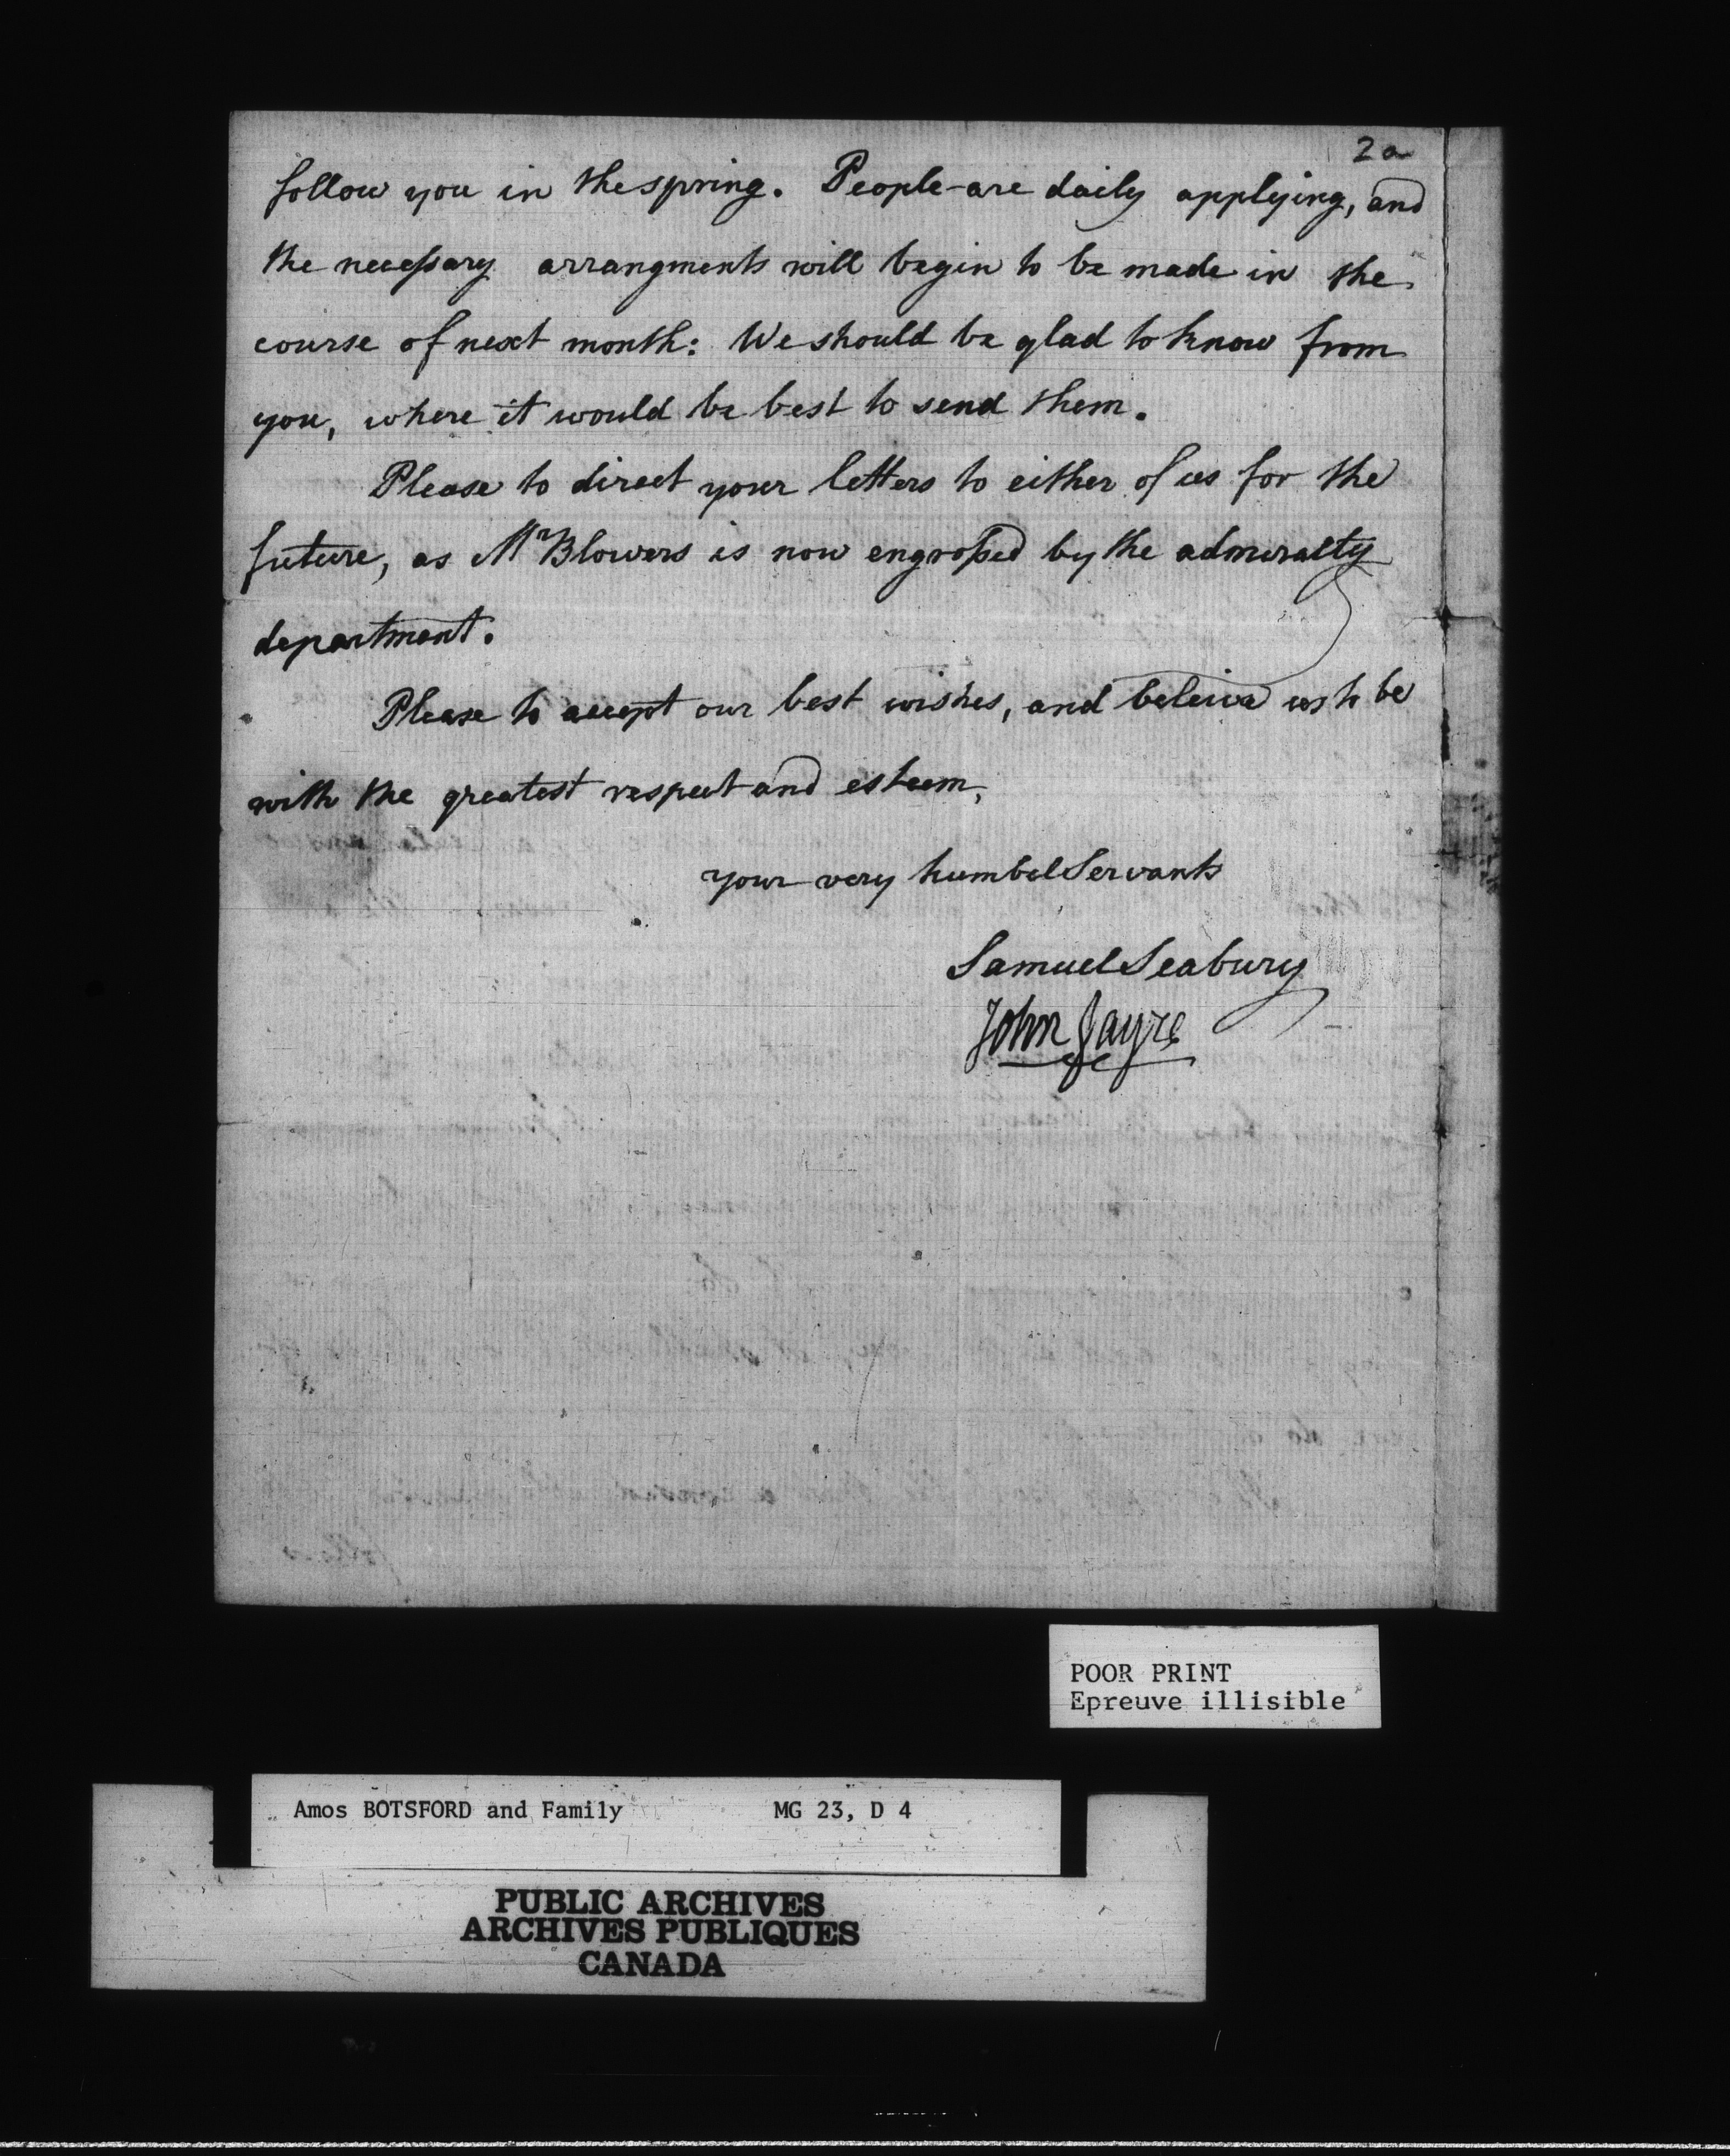 2a
follow you in the spring. People are daily applying, and
the necessary arrangments will begin to be made in the
course of next month: We should be glad to know from
you, where it would be best to send them.
Please to direct your letters to either of us for the
future, as Mr Blowers is now engrossed by the admiralty
department.
Please to accept our best wishes, and beleive us to be
with the greatest respect and esteem,
your very humbel Servants
Samuel Seabury
John Sayre
POOR PRINT
Epreuve illisible
Amos BOTSFORD and Family MG 23, D 4
PUBLIC ARCHIVES
ARCHIVES PUBLIQUES
CANADA